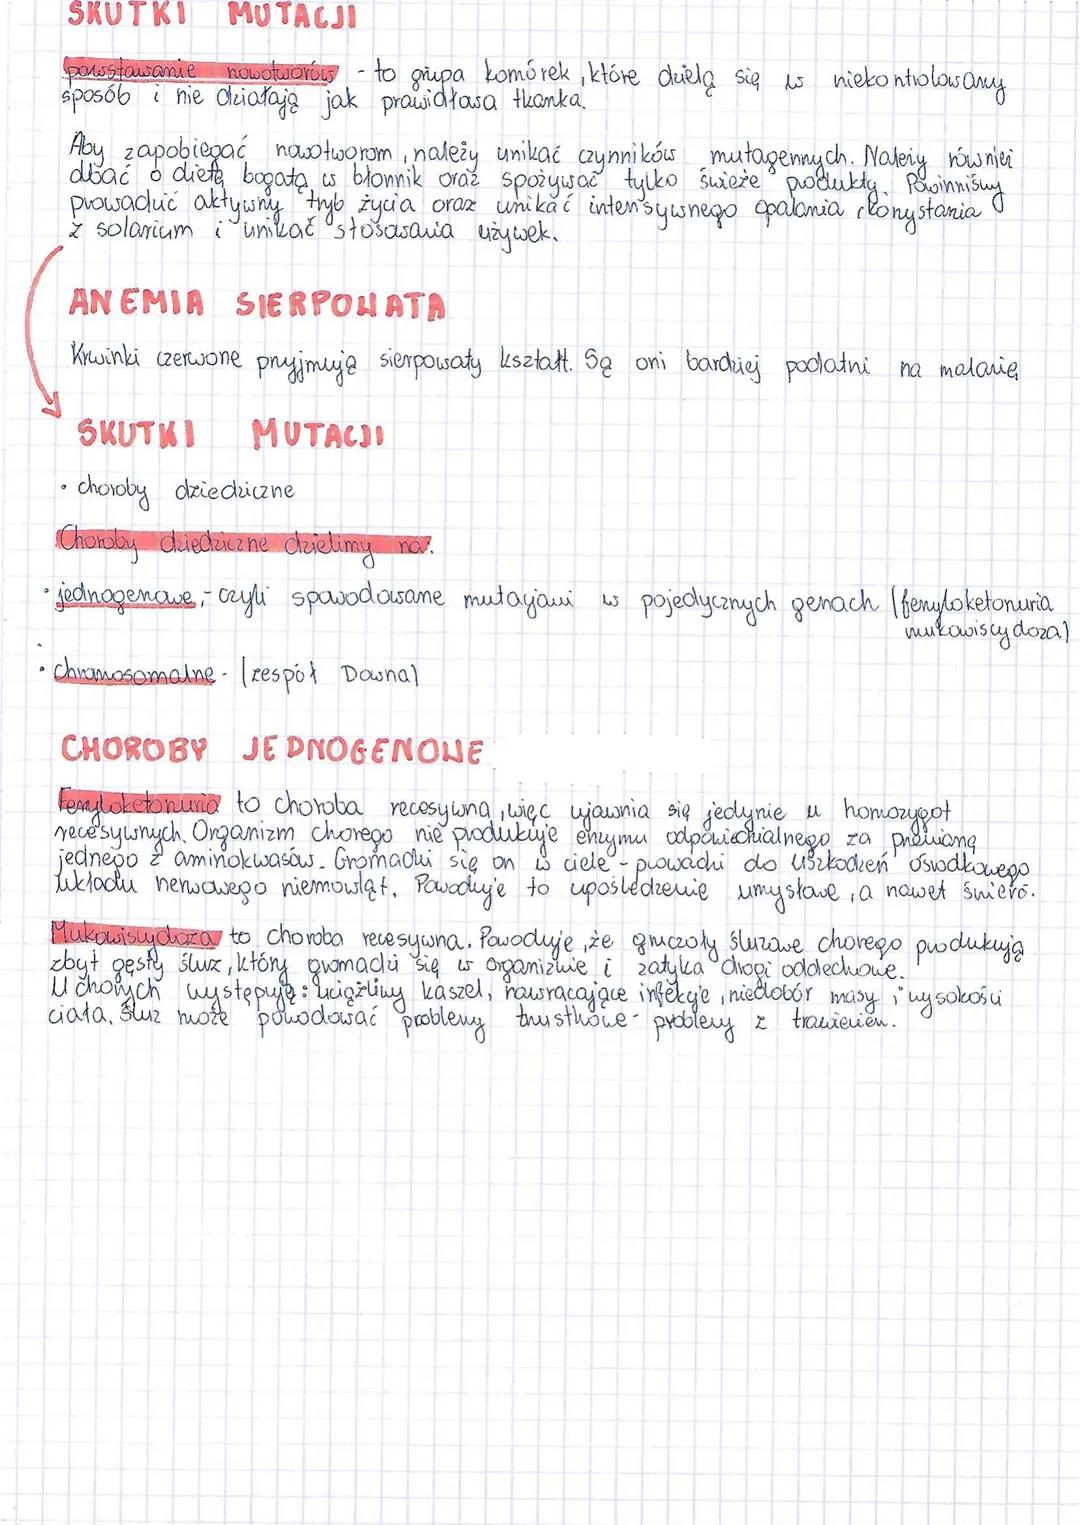 SKUTKI MUTACJI
powstawanie nowotworów - to grupa komórek, które dzielą się w niekontrolowany
sposób i nie działają jak prawidłowa tkanka.
Aby zapobiegać nowotworom, należy unikać czynników mutagennych. Należy również
dbać o dietę bogatą w błonnik oraz spożywać tylko świeże produkty. Powinniśmy
prowadzić aktywny tryb życia oraz unikać intensywnego opalania, korzystania
z solarium i unikać stosowania używek.
ANEMIA SIERPOWATA
Krwinki czerwone przyjmują sierpowaty kształt. Są oni bardziej podatni na malarię
SKUTKI MUTACJI
• choroby dziedziczne
Choroby dziedziczne dzielimy na:
• jednogenowe, - czyli spowodowane mutacjami w pojedycznych genach (fenyloketonuria
mukowiscydoza)
• chromosomalne - (zespół Downa)
CHOROBY JEDNOGENOWE
Fenyloketonuria to choroba recesywna, więc ujawnia się jedynie u homozygot
recesywnych. Organizm chorego nie produkuje enzymu odpowiedzialnego za przemianę
jednego z aminokwasów. Gromadzi się on w ciele - prowadzi do uszkodzeń ośrodkowego
układu nerwowego niemowląt. Powoduje to upośledzenie umysłowe, a nawet śmierć.
Mukowiscydoza to choroba recesywna. Powoduje, że gruczoły śluzowe chorego produkują
zbyt gęsty śluz, który gromadzi się w organizmie i zatyka drogi oddechowe.
U chorych występują: uciążliwy kaszel, nawracające infekcje, niedobór masy i wysokości
ciała. Śluz może powodować problemy trzustkowe - problemy z trawieniem.